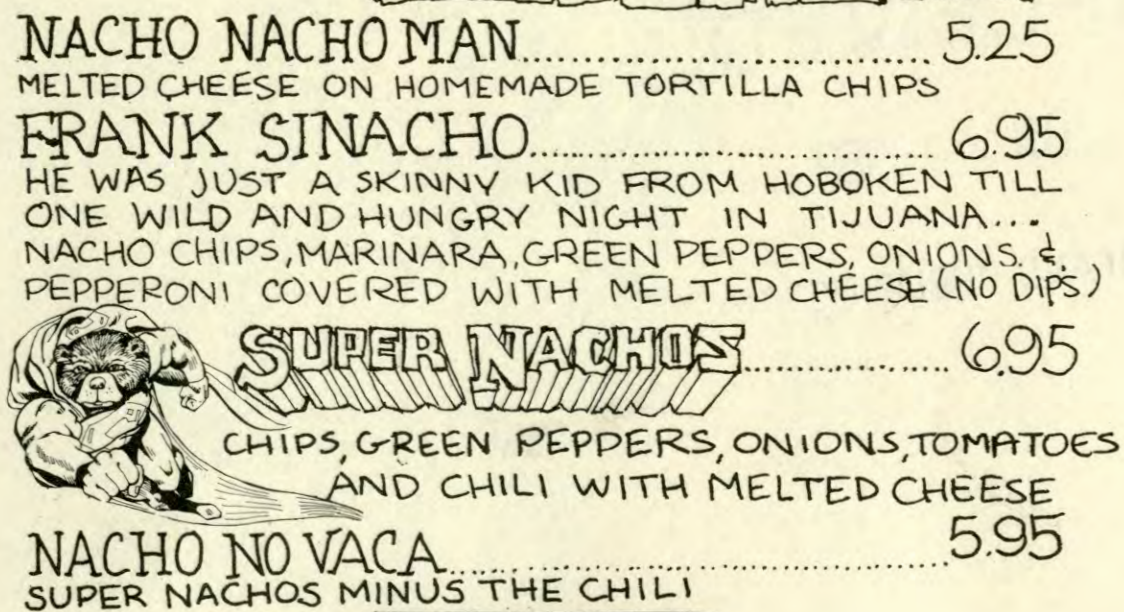 NACHO NACHO MAN.......................... 5.25
MELTED CHEESE ON HOMEMADE TORTILLA CHIPS
FRANK SINACHO.......................... 6.95
HE WAS JUST A SKINNY KID FROM HOBOKEN TILL
ONE WILD AND HUNGRY NIGHT IN TIJUANA...
NACHO CHIPS, MARINARA, GREEN PEPPERS, ONIONS. &
PEPPERONI COVERED WITH MELTED CHEESE (NO DIPS)
SUPER NACHOS.................. 6.95
CHIPS, GREEN PEPPERS, ONIONS, TOMATOES
AND CHILI WITH MELTED CHEESE
NACHO NO VACA.......................... 5.95
SUPER NACHOS MINUS THE CHILI